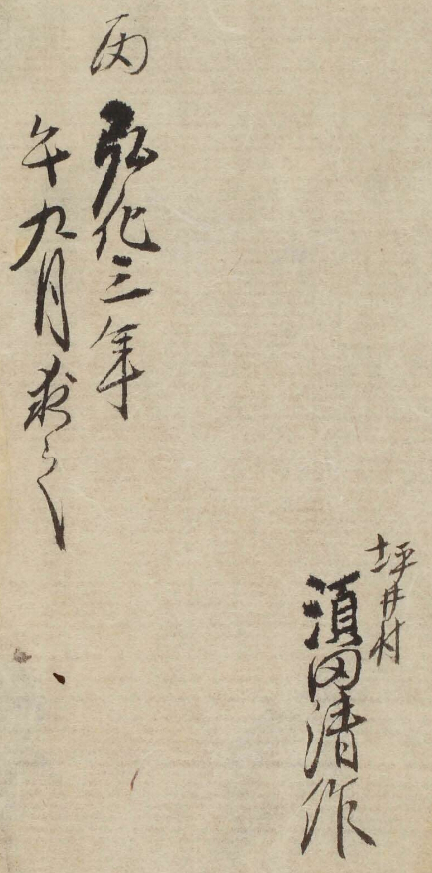 坪井村
濵田清作
丙
弘化三年
午九月求之